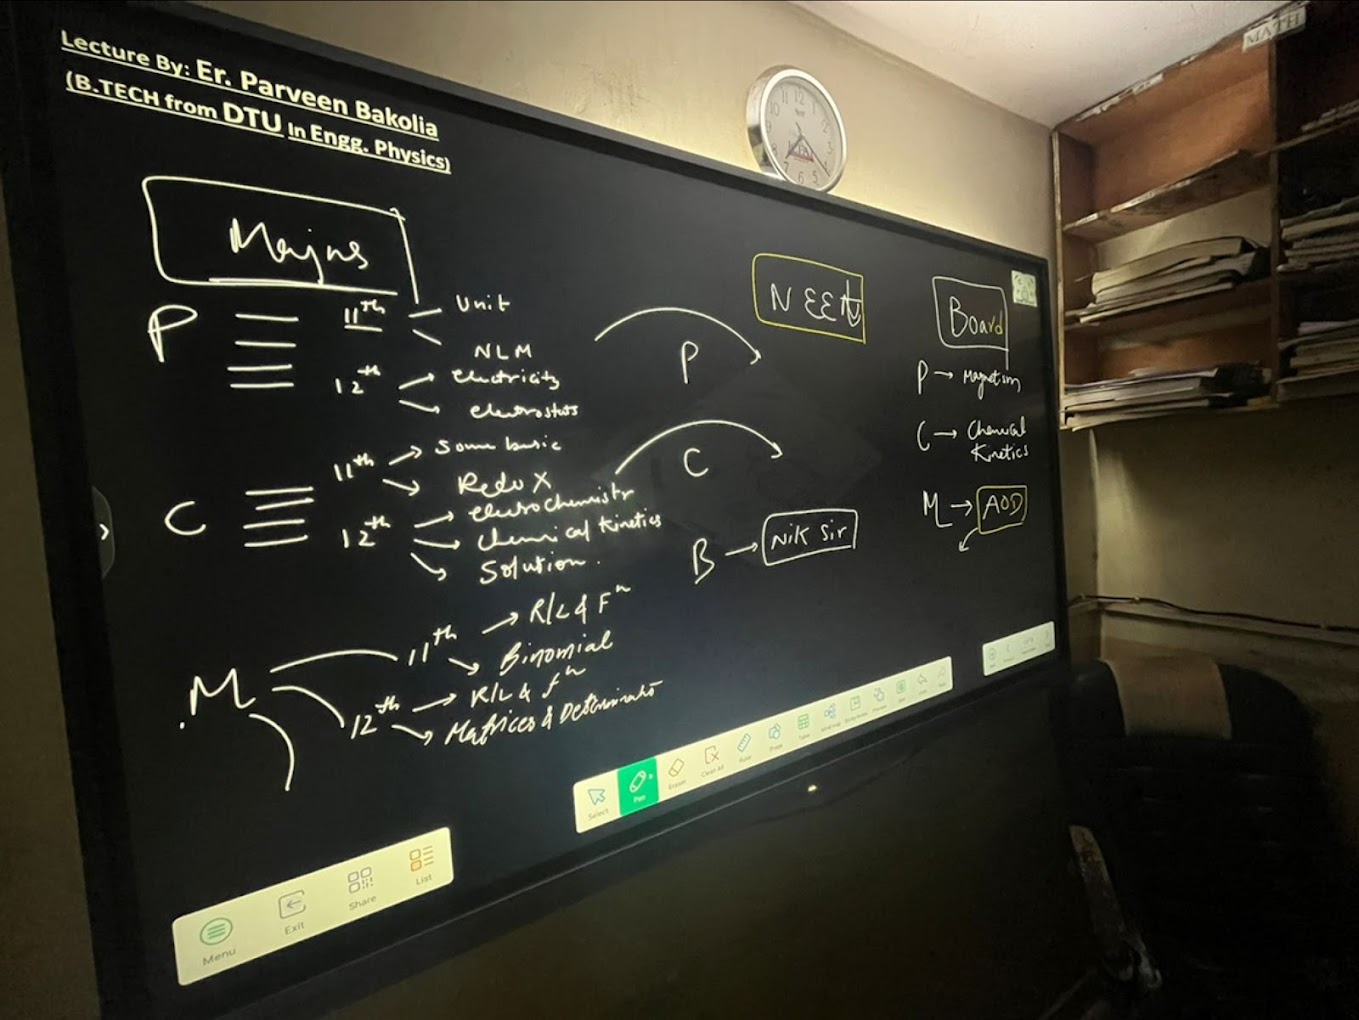 Lecture By: Er. Parveen Bakolia
(B.TECH from DTU In Engg. Physics)
Mains
P 11th Unit
NLM
12th electricity
electrostats
C 11th Some basic
Redox
12th electrochemistr
chemical kinetics
Solution.
M 11th R/L & Fn
Binomial
12th R/L & fn
Matrices & Determinants
NEET
P
C
B → Nik Sir
Board
P → Magnetism
C → Chemical
Kinetics
M → AOD
MATH
12
1
2
3
5
6
10
Select
Pen
Eraser
Clean All
Ruler
Shape
Table
Menu
Exit
Share
List